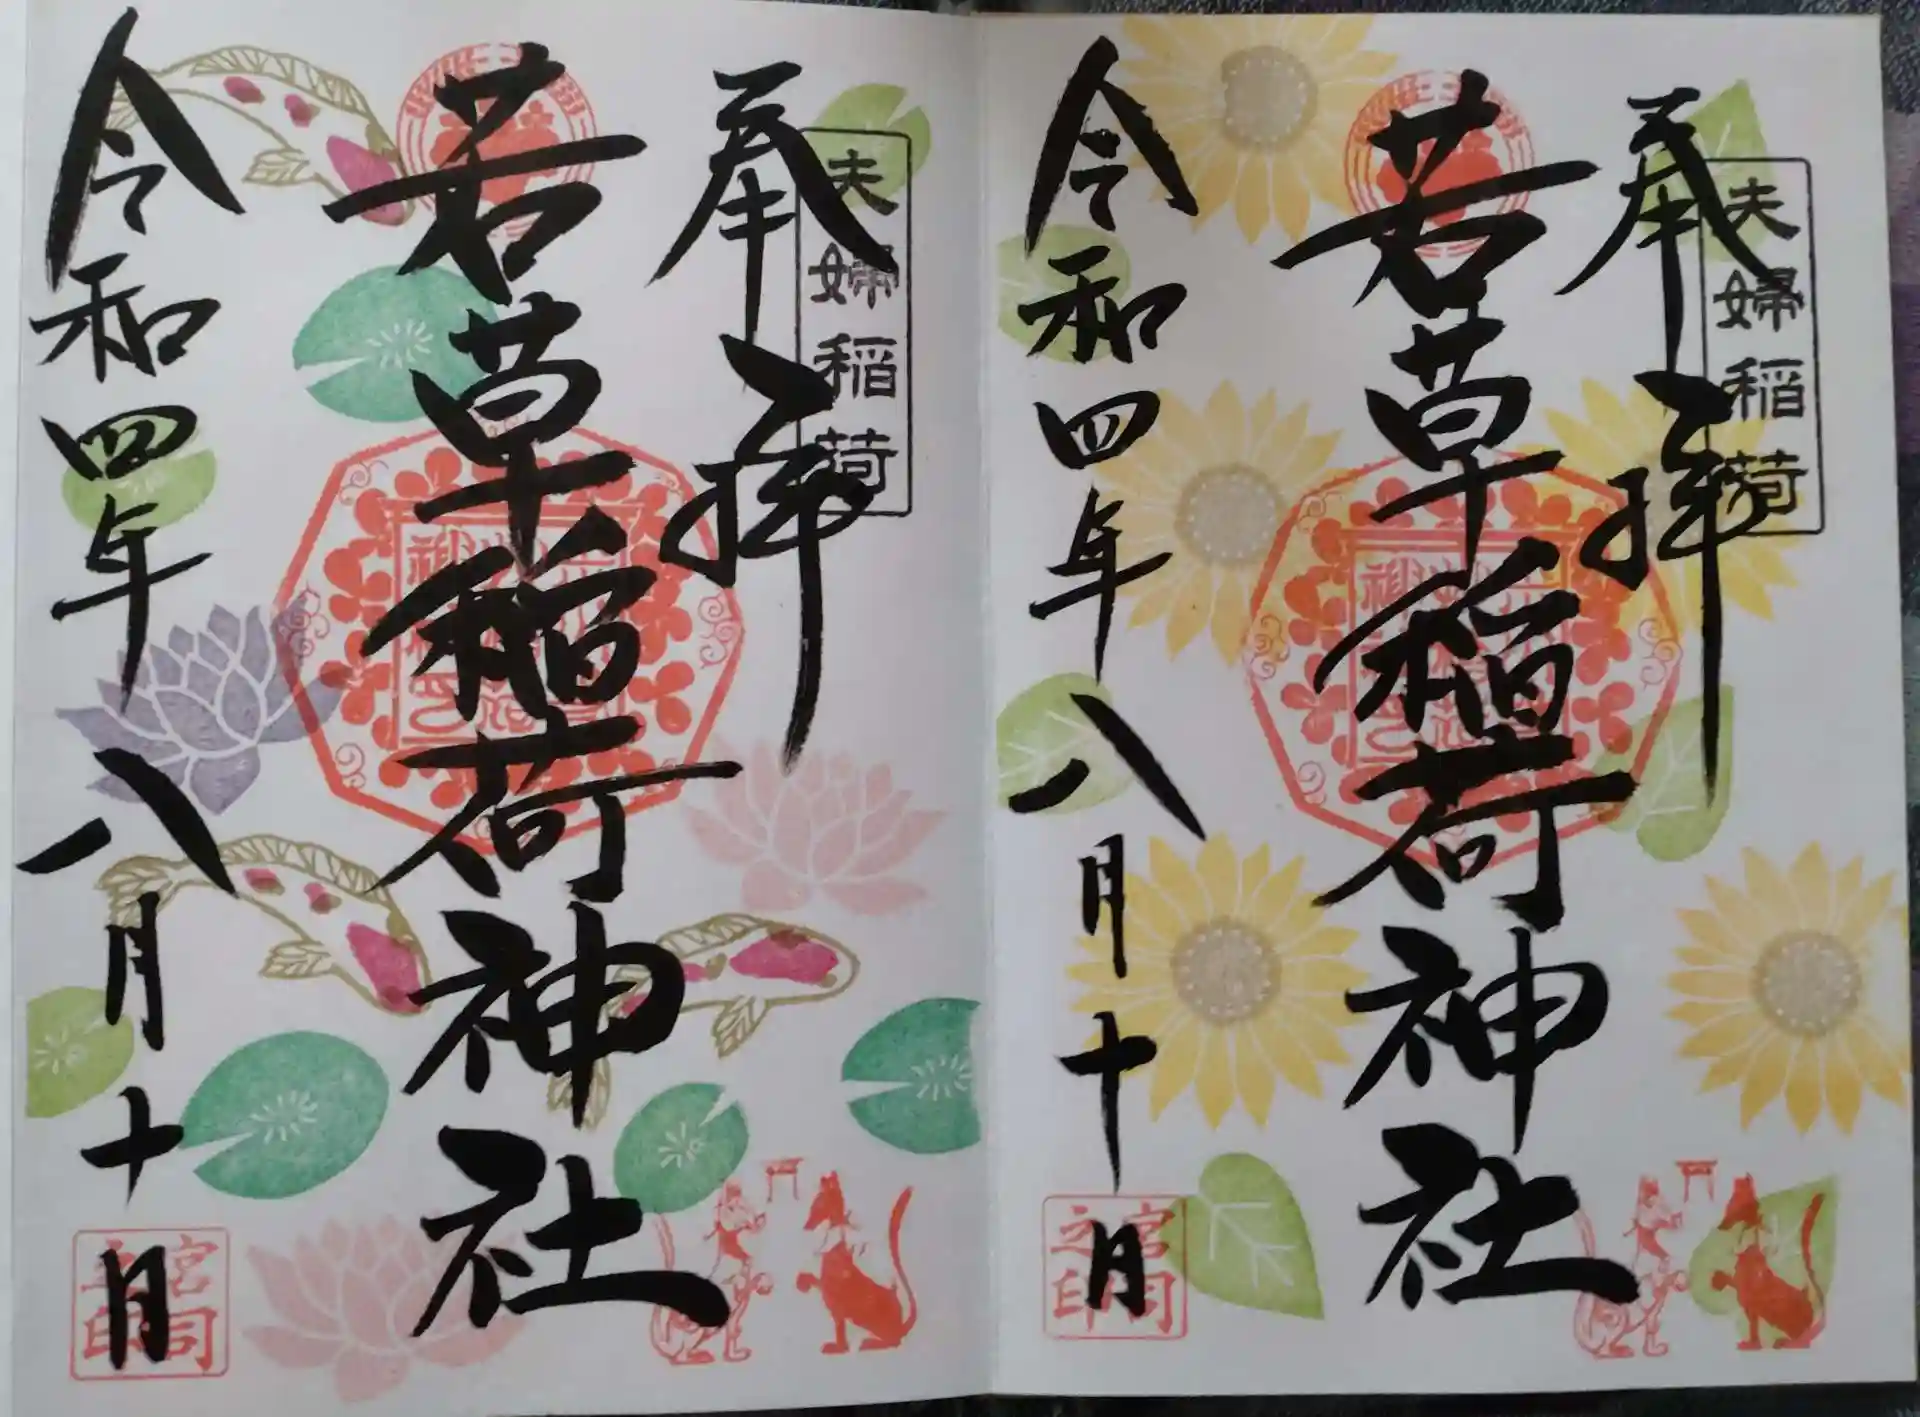 夫婦稲荷
奉拝
若草稲荷神社
令和四年八月十日
宮司之印
夫婦稲荷
奉拝
若草稲荷神社
令和四年八月十日
宮司之印